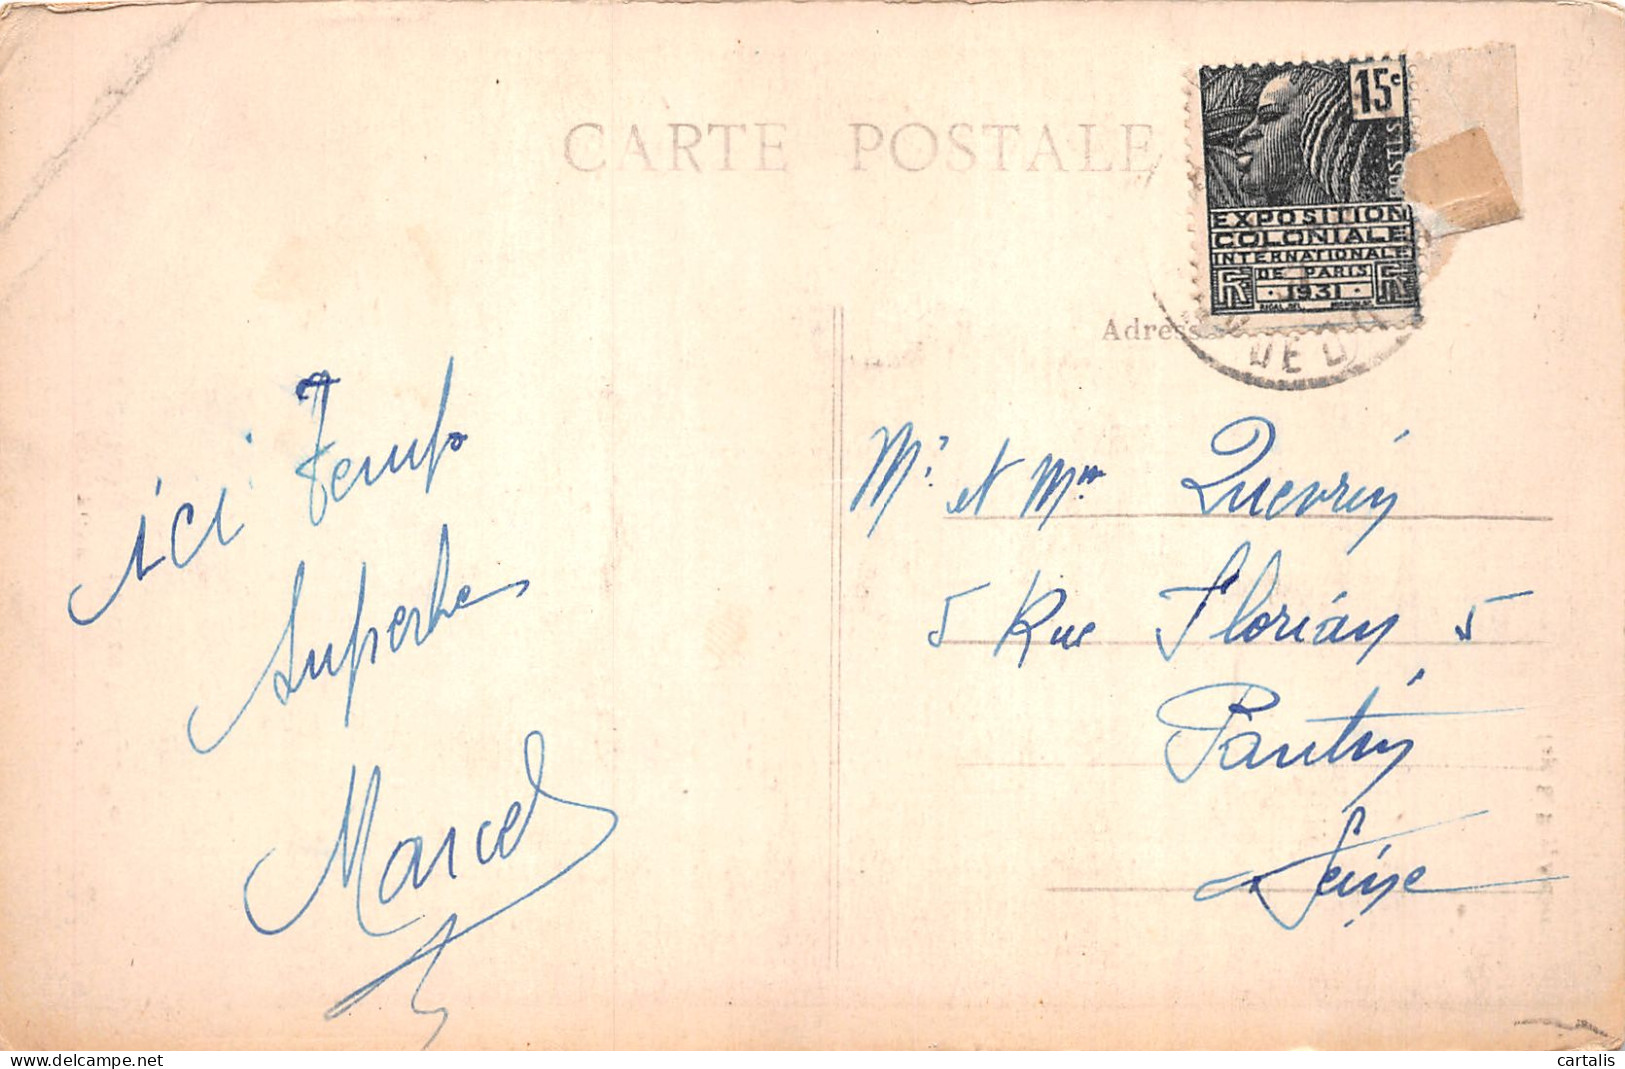 CARTE POSTALE
15c
POSTES
EXPOSITION
COLONIALE
INTERNATIONALE
DE PARIS
1931
Adresse
ici Temps
Superbe
Marcel
Mr et Mme Quevrin
5 Rue Florian 5
Pantin
Seine
cartalis